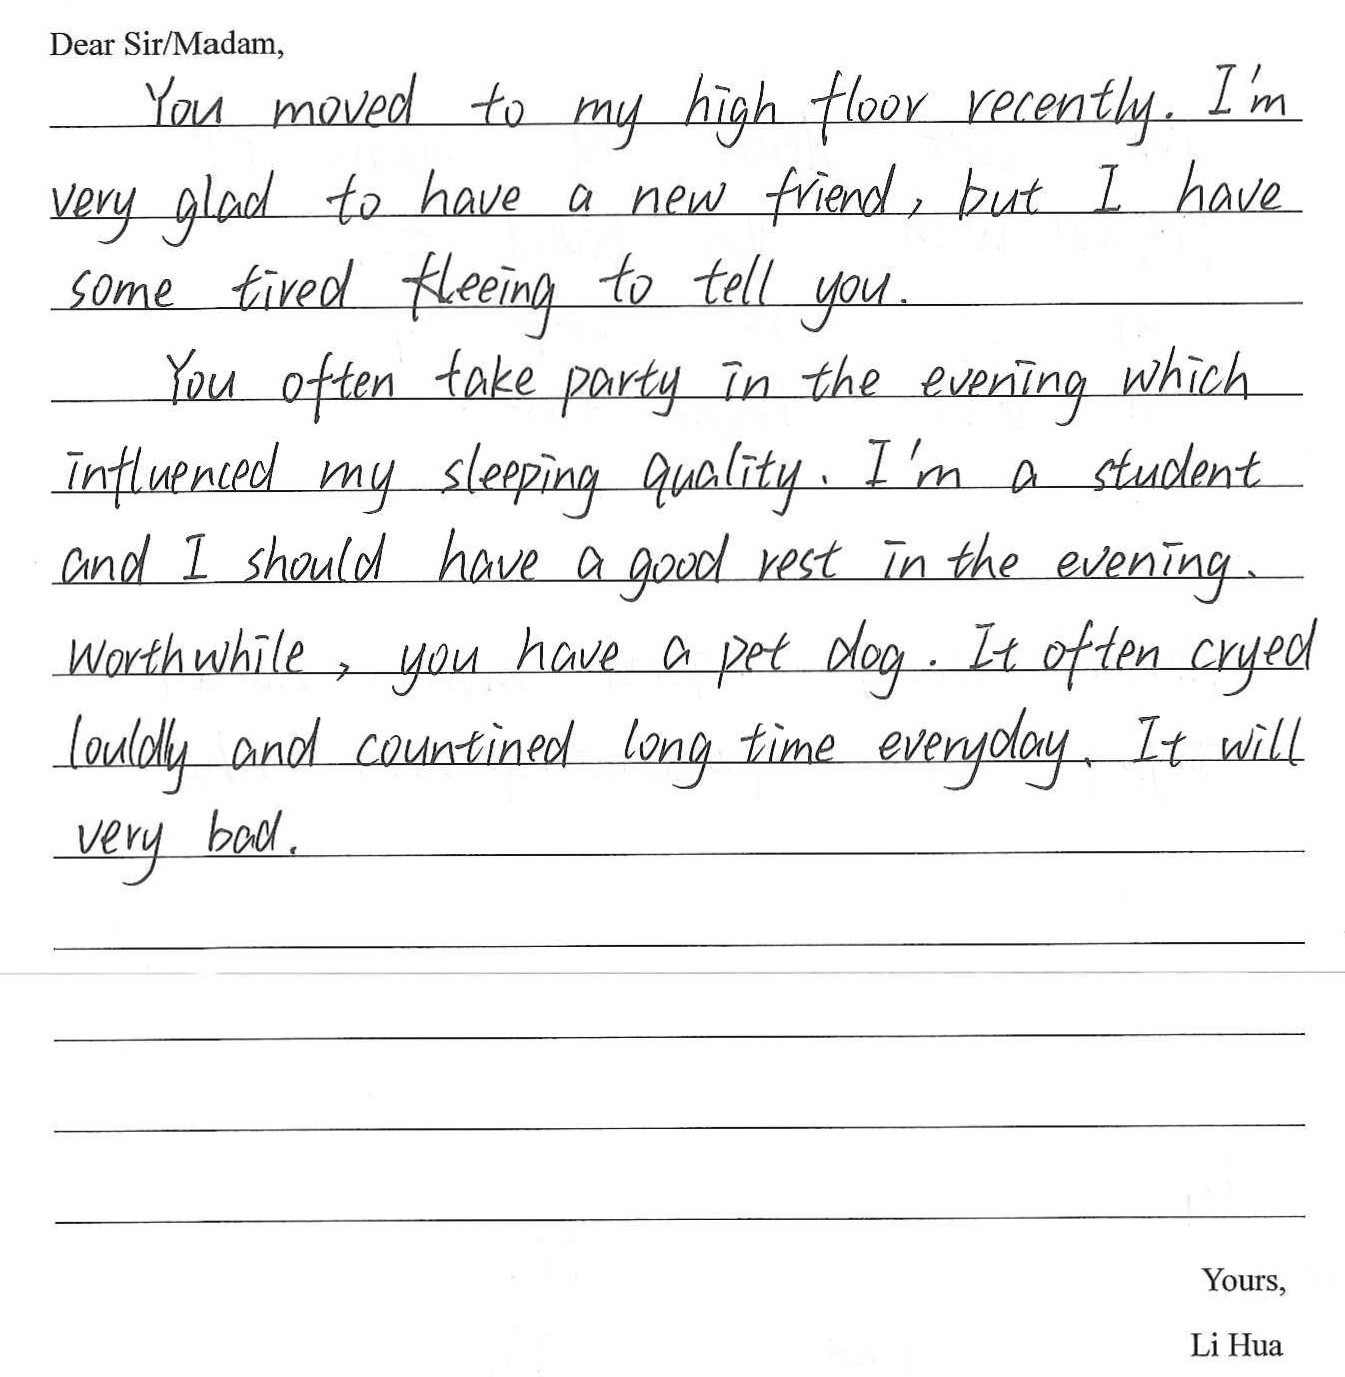 Dear Sir/Madam,
You moved to my high floor recently. I'm
very glad to have a new friend, but I have
some tired fleeing to tell you.
You often take party in the evening which
influenced my sleeping quality. I'm a student
and I should have a good rest in the evening.
Worthwhile, you have a pet dog. It often cryed
louldly and countined long time everyday. It will
very bad.
Yours,
Li Hua